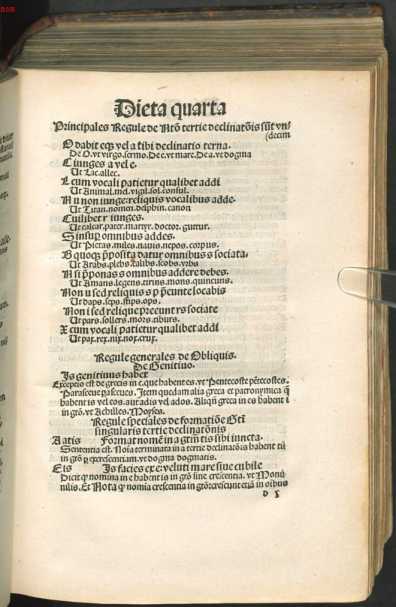 Dieta quarta
Principales Regule de Ntō tertie declinatōis sūt vn/
(decim
O dabit eqȝ vel a tibi declinatio terna.
De O. vt virgo. sermo. De e. vt mare. De a. vt dogma
C iunges a vel e.
Ut Lac. allec.
L cum vocali patietur qualibet addi
Ut Animal. mel. vigil. sol. consul.
N u non iunge: reliquis vocalibus adde.
Ut Titan. nomen. delphin. canon
Cuilibet r iunges.
Ut calcar. pater. martyr. doctor. guttur.
S insup omnibus addes.
Ut Pietas. miles. nauis. nepos. corpus.
B quoqȝ pposita datur omnibus s sociata.
Ut Arabs. plebs. calibs. scobs. vrbs
N si pponas s omnibus addere debes.
Ut Amans. legens. tiruns. mons. quincuns.
Non u sed reliquis s p peunte locabis
Ut daps. seps. stips. ops.
Non i sed relique preeunt rs sociate
Ut pars. sollers. mors. tiburs.
X cum vocali patietur qualibet addi
Ut pax. rex. nix. nox. crux.
Regule generales de Obliquis.
De Genitiuo.
Is genitiuus habet
Exceptio est de grecis in e. que habent es. vt Pentecoste pētecostes.
Parasceue parasceues. Item quedam alia greca et patronymica q̄
habent is vel eos. aut adis vel ados. Aliqn̄ greca in es habent i
in gtō. vt Achilles. Moyses.
Regule speciales de formatiōe Gti
singularis tertie declinatōnis
A atis Format nomē in a gtm̄ tis sibi iuncta.
Sententia est. Noīa terminata in a tertie declinatōis habent tū
in gtō p crescentiam. vt dogma dogmatis.
E is Is facies ex e: veluti mare siue cubile
Dicit q nomina in e habent is in gtō sine crescentia. vt Monile
nilis. Et Nota q nomia crescentia in gtō: crescunt etiā in oībus